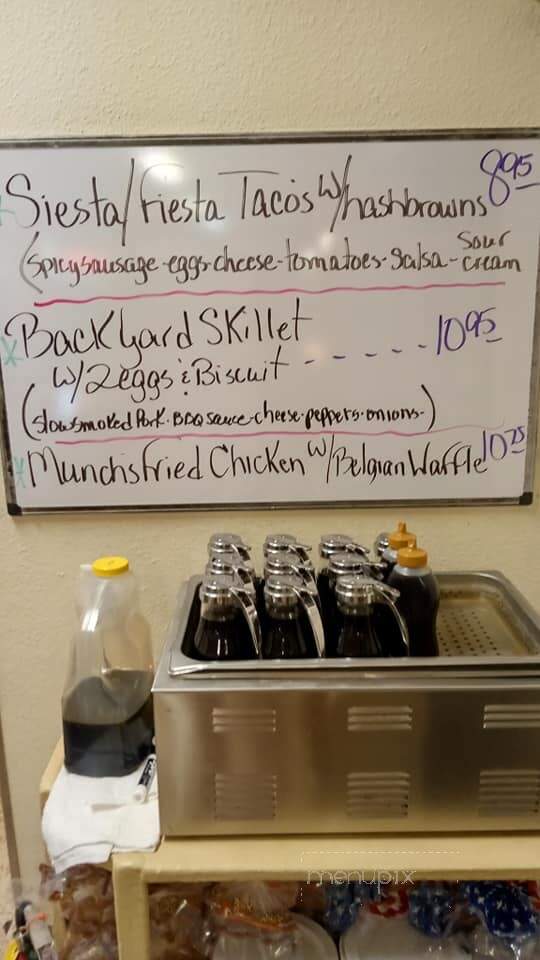 Siesta/Fiesta Tacos w/hashbrowns 8.95
(spicy sausage-eggs-cheese-tomatoes-salsa-sour cream
Backyard Skillet
w/2eggs & Biscuit - - - - - 10.95
(slow smoked Pork-BBQ sauce-cheese-peppers-onions-)
Munchs Fried Chicken w/Belgian Waffle 10.25
menupix